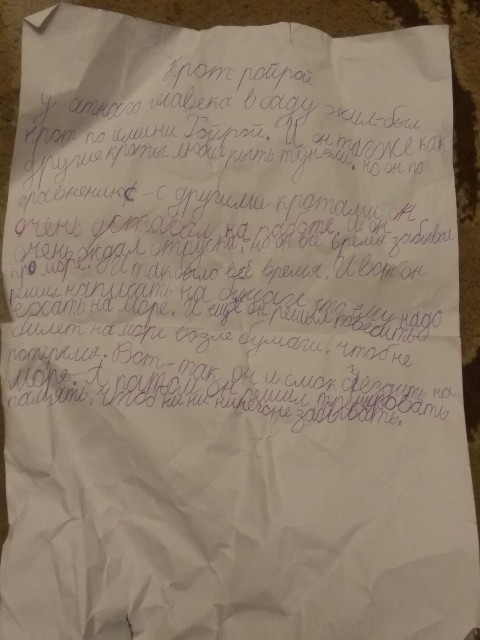 Крот ройрой
У одного человека в саду жил-был
крот по имини Ройрой. И он также как
другие кроты любил рыть тунели. но он по
сравнению - с другими кротами
очень уставал на работе. и он
очень ждал отпуска. но он всё время забывал
про море. И так было всё время. И вот он
решил написать на бумаге что ему надо
ехать на море. И ещё он решыл повесить
билет на море возле бумаги. чтоб не
потерять. Вот-так он и смог ездить на
море. А потом он решил тренировать
память. чтоб ничего не забывать.